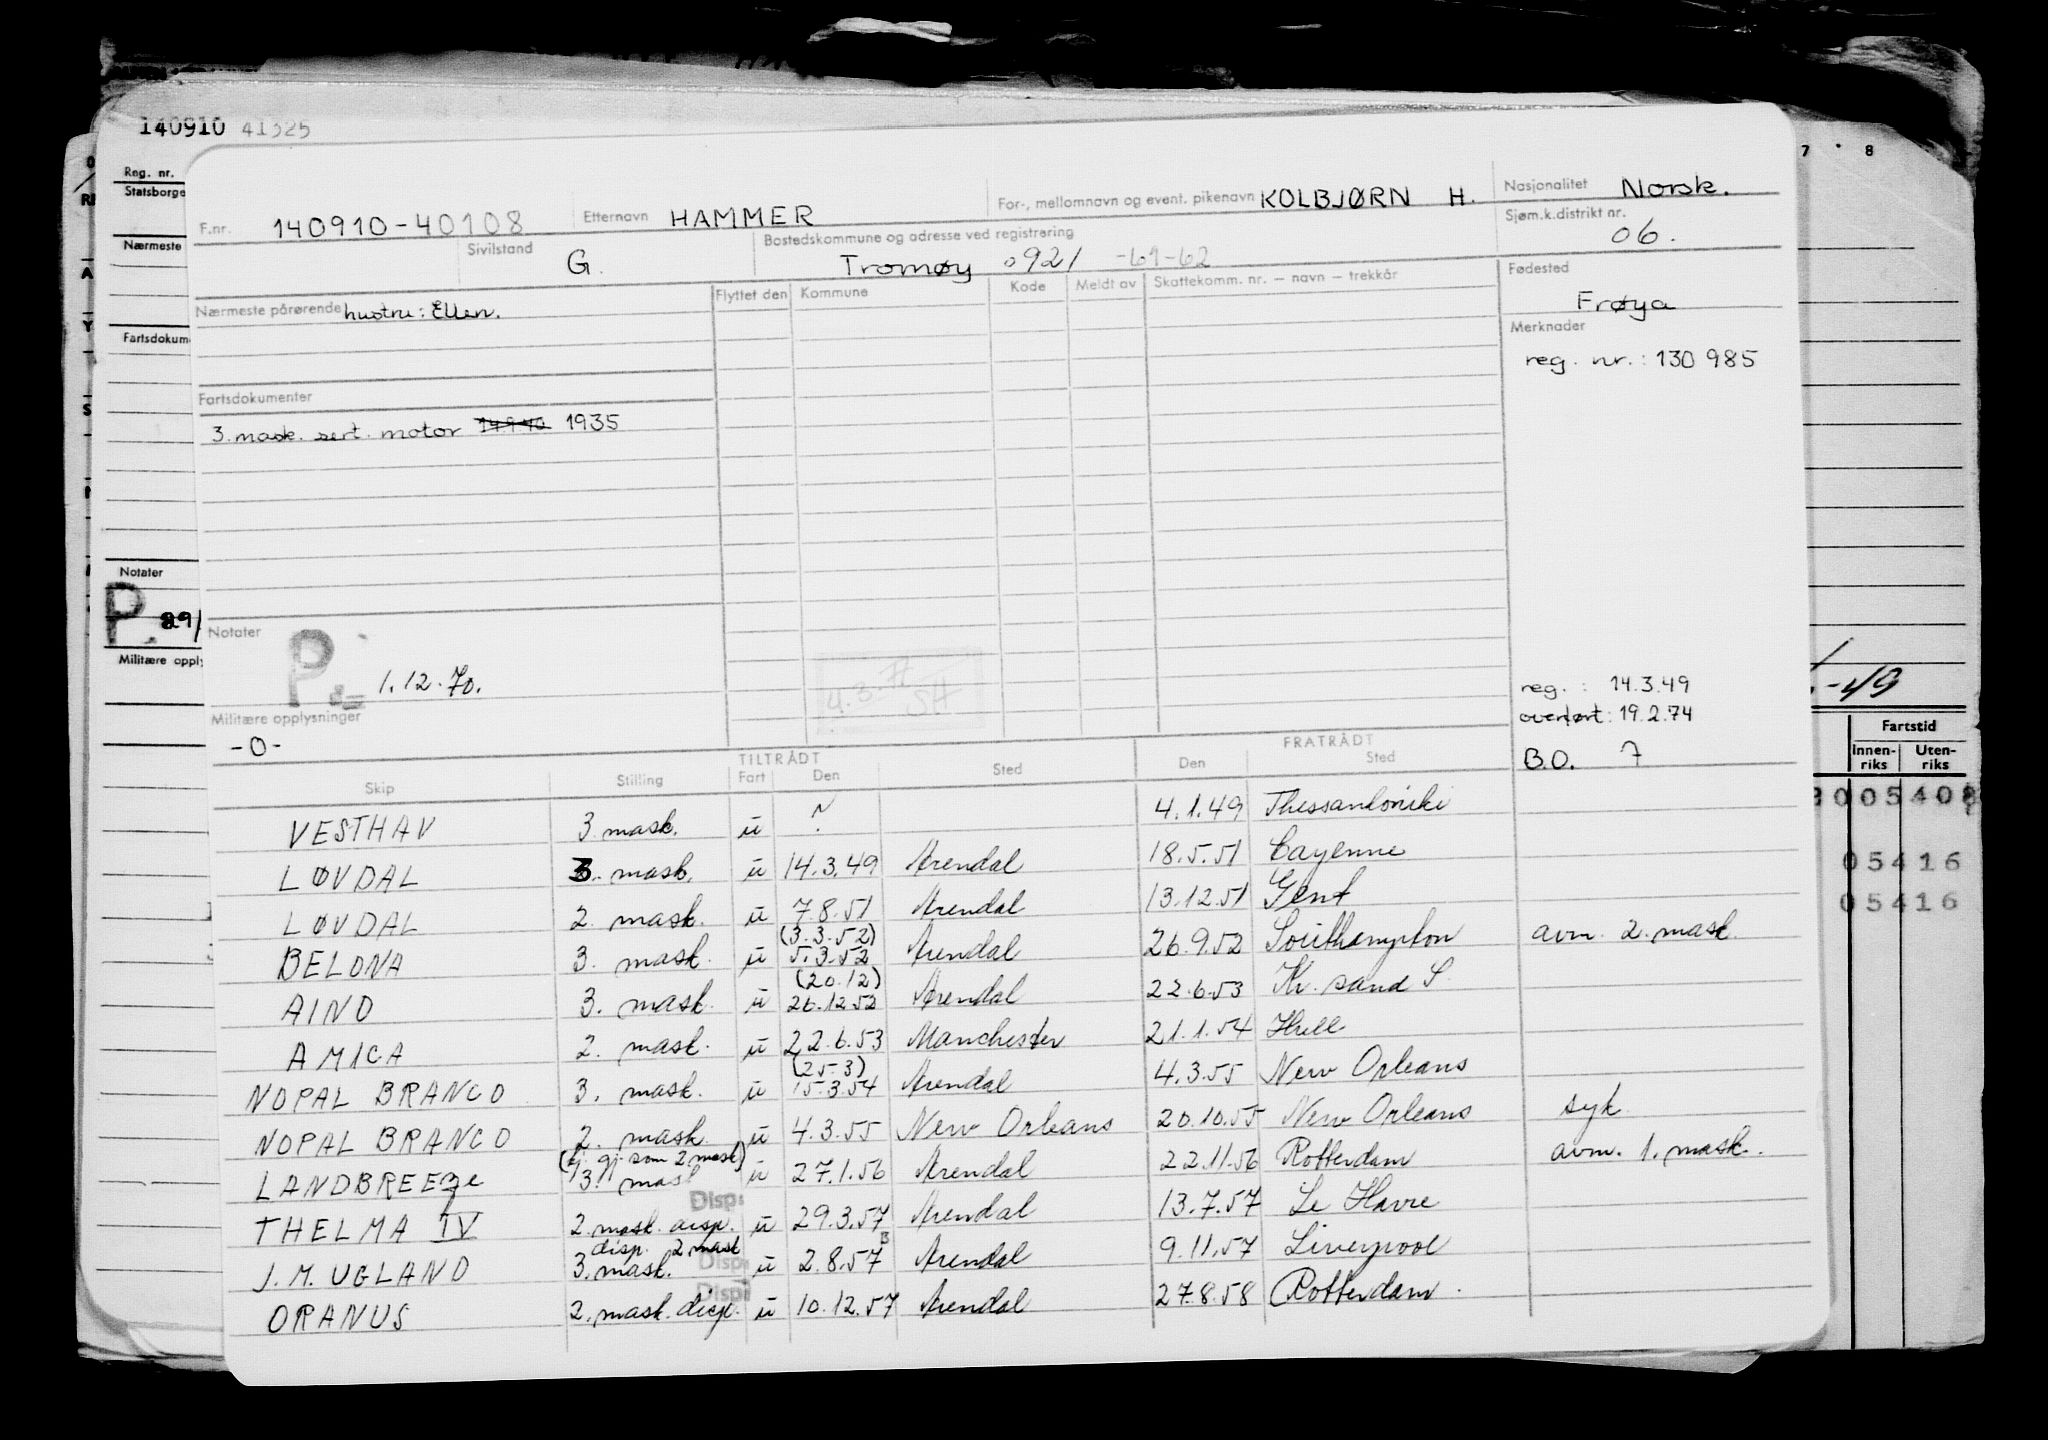 140910 41325
7 8
Reg. nr.
Statsborge
Nærmeste
Fartsdokum
Notater
P. 29/
Militære opply
-49
Fartstid
Innen-riks Uten-riks
05408
05416
05416
F.nr. 140910-40108 Etternavn HAMMER For-, mellomnavn og event. pikenavn KOLBJØRN H. Nasjonalitet Norsk.
Sivilstand G. Bostedskommune og adresse ved registrering Tromøy 0921 -61-62 Sjøm.k.distrikt nr. 06.
Nærmeste pårørende hustru: Ellen. Flyttet den Kommune Kode Meldt av Skattekomm. nr. – navn – trekkår Fødested Frøya
Merknader
reg. nr.: 130 985
Fartsdokumenter
3. mask. sert. motor 14.9.40 1935
Notater
P 1.12.70.
4.3.71 SH
reg.: 14.3.49
overført: 19.2.74
Militære opplysninger
-0-
B.O. 7
TILTRÅDT FRATRÅDT
Skip Stilling Fart Den Sted Den Sted
VESTHAV 3 mask. u ? 4.1.49 Thessanloniki
LØVDAL 3. mask. u 14.3.49 Arendal 18.5.51 Cayenne
LØVDAL 2. mask. u 7.8.51 Arendal 13.12.51 Gent
(3.3.52)
BELONA 3. mask. u 5.3.52 Arendal 26.9.52 Southampton avm. 2. mask.
(20.12)
AINO 3. mask. u 26.12.52 Arendal 22.6.53 Kr. sand S.
AMICA 2. mask. u 22.6.53 Manchester 21.1.54 Hull
(25.3)
NOPAL BRANCO 3. mask. u 15.3.54 Arendal 4.3.55 New Orleans
NOPAL BRANCO 2. mask. u 4.3.55 New Orleans 20.10.55 New Orleans syk
(tj. gj. som 2 mask)
LANDBREEze 3. mask u 27.1.56 Arendal 22.11.56 Rotterdam avm. 1. mask.
Disp.
THELMA IV 2. mask. disp. u 29.3.57 Arendal 13.7.57 Le Havre
disp. 2 mask
J.M. UGLAND 3. mask. Disp. u 2.8.57 Arendal 9.11.57 Liverpool
Disp.
ORANUS 2. mask. disp. u 10.12.57 Arendal 27.8.58 Rotterdam.